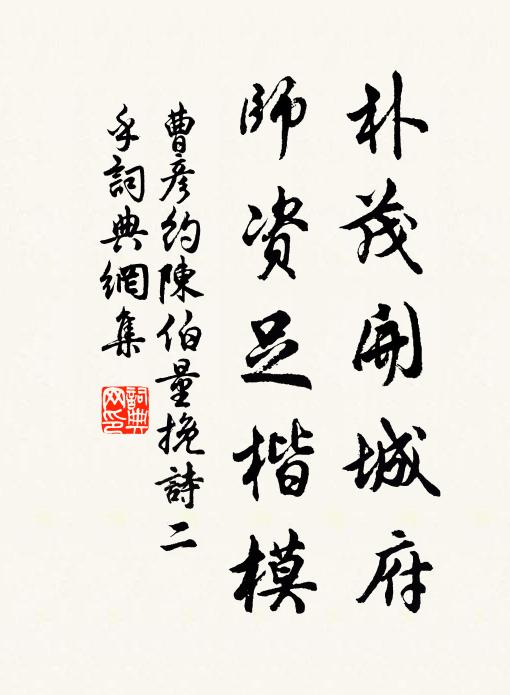 朴茂開城府
師资足楷模
曹彦約陳伯量挽詩二
手詞典網集
詞典网印